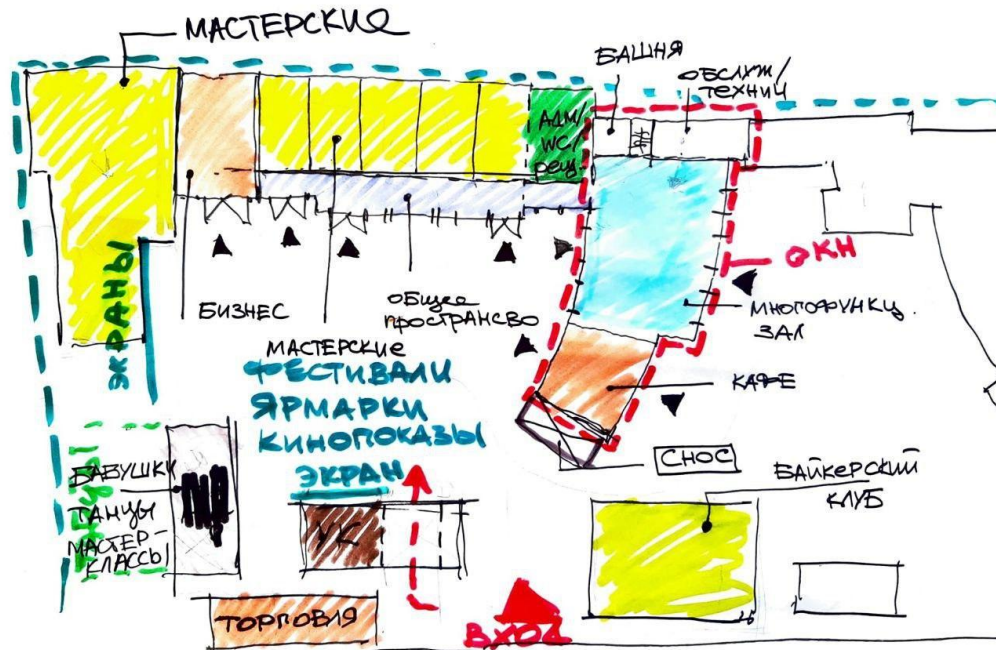 МАСТЕРСКИЕ
БАШНЯ
ОБСЛУЖ/
ТЕХНИЧ
АДМ/
WC/
РЕЦ.
ЭКРАНЫ
БИЗНЕС
ОБЩЕЕ
ПРОСТРАНСВО
ОКН
МНОГОФУНКЦ.
ЗАЛ
МАСТЕРСКИЕ
ФЕСТИВАЛИ
ЯРМАРКИ
КИНОПОКАЗЫ
ЭКРАН
КАФЕ
СНОС
БАЙКЕРСКИЙ
КЛУБ
БАБУШКИ
ТАНЦЫ
МАСТЕР-
КЛАССЫ
УК
ТОРГОВЛЯ
ВХОД